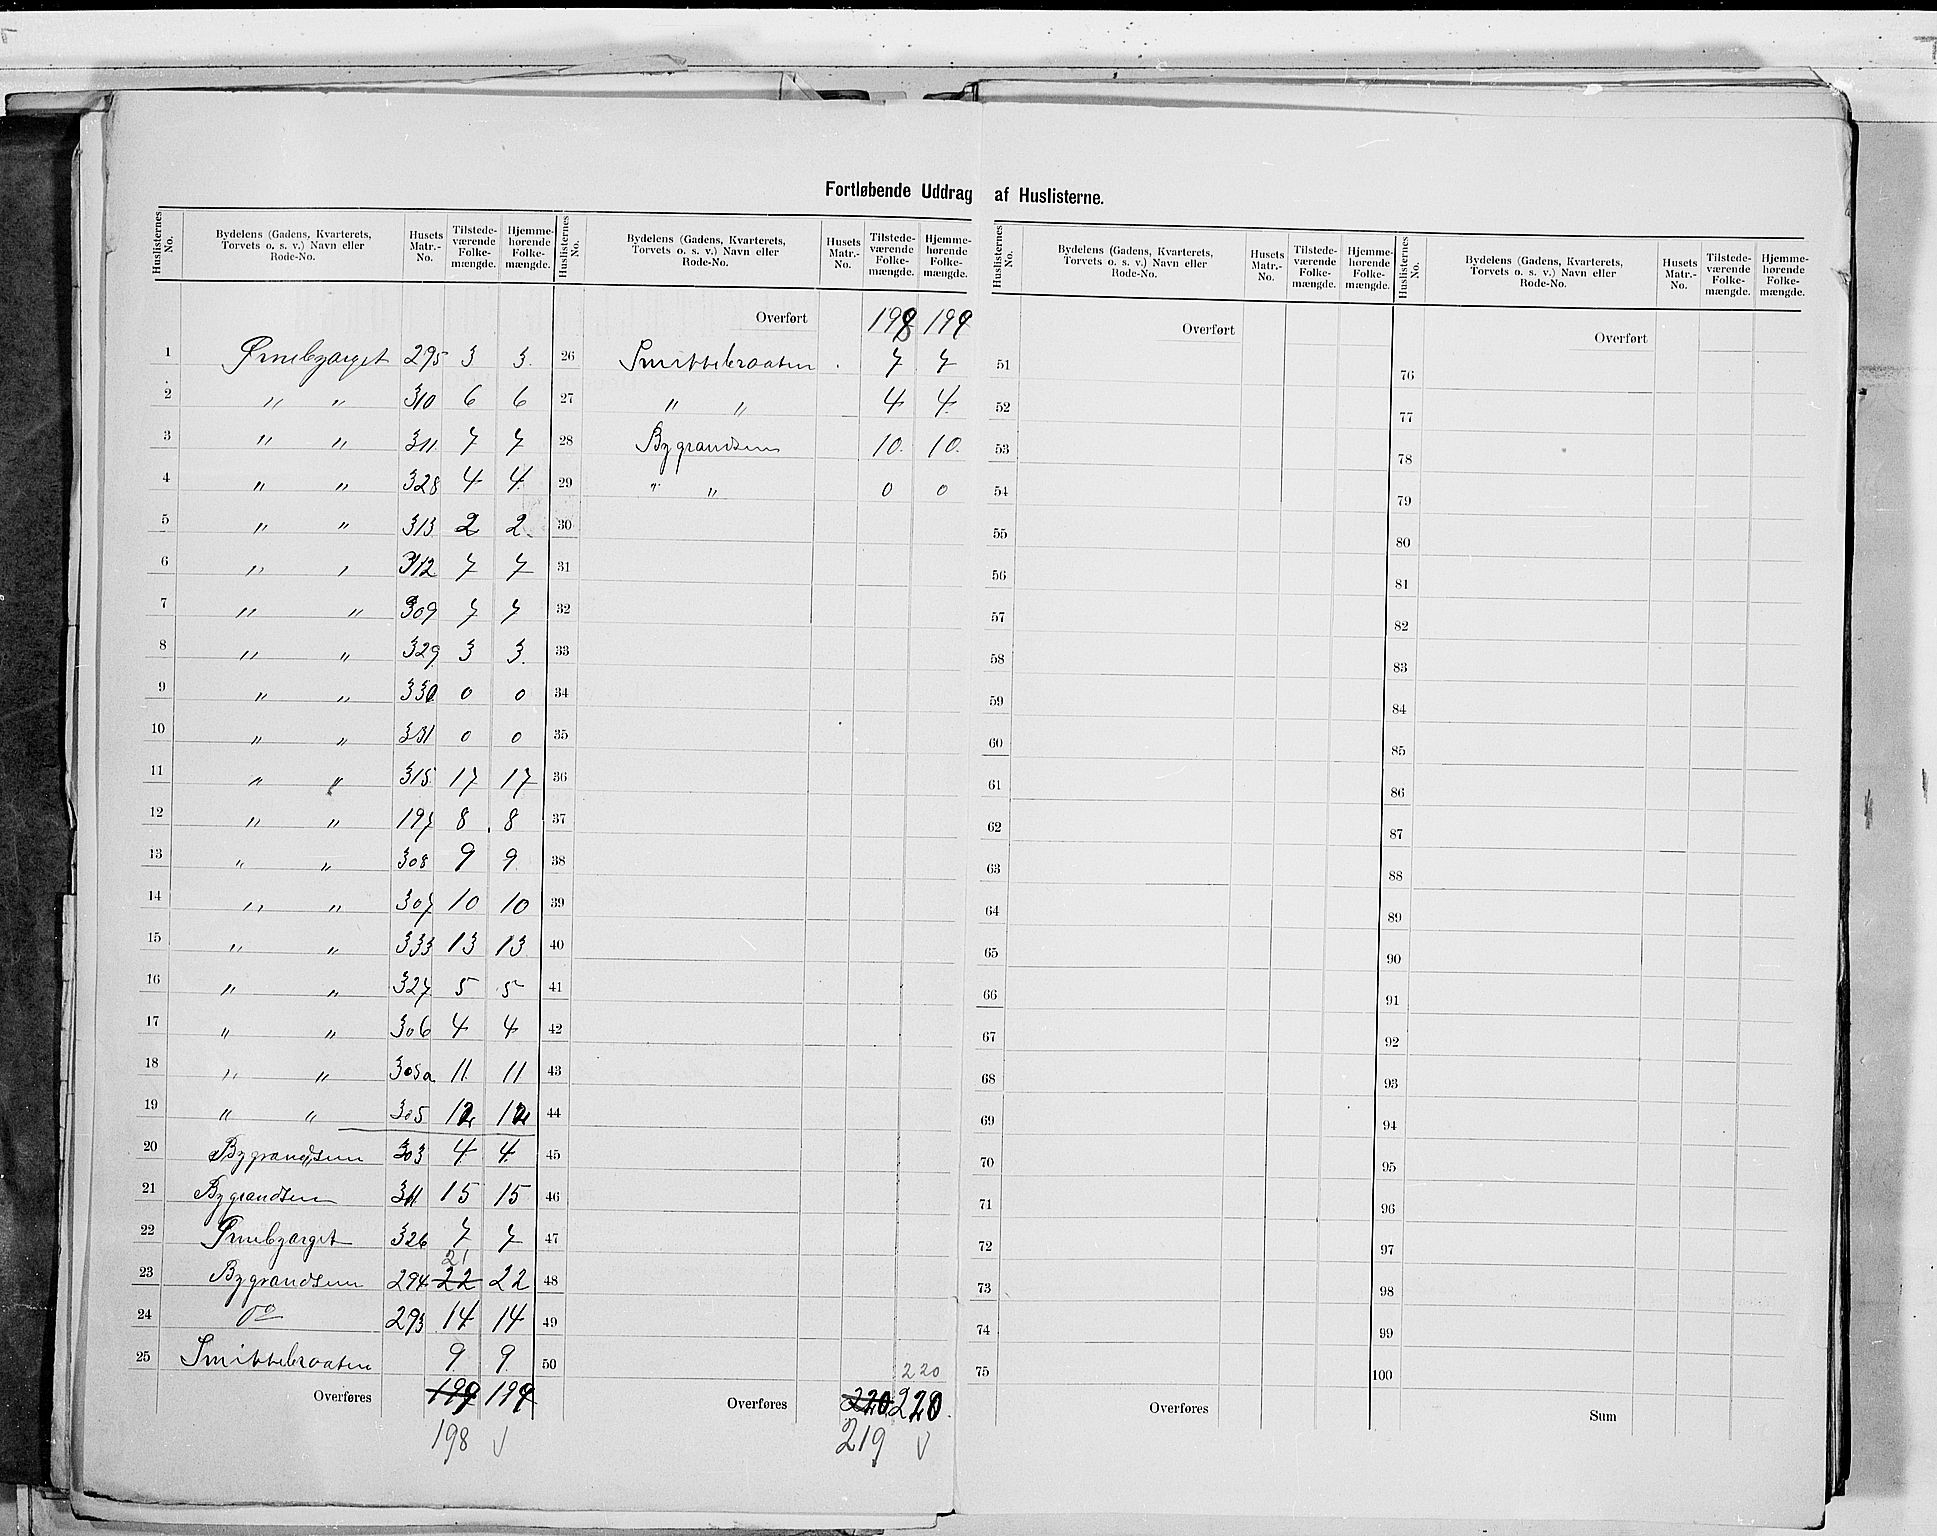 Fortløbende Uddrag af Huslisterne.
Huslisternes No. Bydelens (Gadens, Kvarterets, Torvets o. s. v.) Navn eller Rode-No. Husets Matr.-No. Tilstedeværende Folkemængde. Hjemmehørende Folkemængde.
1 Ørnebjærget 295 3 3
2 " " 310 6 6
3 " " 311 7 7
4 " " 328 4 4
5 " " 313 2 2
6 " " 312 7 7
7 " " 309 7 7
8 " " 329 3 3
9 " " 330 0 0
10 " " 331 0 0
11 " " 315 17 17
12 " " 197 8 8
13 " " 308 9 9
14 " " 307 10 10
15 " " 333 13 13
16 " " 327 5 5
17 " " 306 4 4
18 " " 305a 11 11
19 " " 305 12 12
20 Bygrandsen 303 4 4
21 Bygrandsen 311 15 15
22 Ørnebjærget 326 7 7
21
23 Bygrandsen 294 22 22
24 Do 293 14 14
25 Smittebraaten 9 9
Overføres 199 199
198 √
Huslisternes No. Bydelens (Gadens, Kvarterets, Torvets o. s. v.) Navn eller Rode-No. Husets Matr.-No. Tilstedeværende Folkemængde. Hjemmehørende Folkemængde.
Overført 198 199
26 Smittebraaten 7 7
27 " " 4 4
28 Bygrandsen 10 10
29 " " 0 0
30
31
32
33
34
35
36
37
38
39
40
41
42
43
44
45
46
47
48
49
50
220
Overføres 220 220
219 √
Huslisternes No. Bydelens (Gadens, Kvarterets, Torvets o. s. v.) Navn eller Rode-No. Husets Matr.-No. Tilstedeværende Folkemængde. Hjemmehørende Folkemængde.
Overført
51
52
53
54
55
56
57
58
59
60
61
62
63
64
65
66
67
68
69
70
71
72
73
74
75
Overføres
Huslisternes No. Bydelens (Gadens, Kvarterets, Torvets o. s. v.) Navn eller Rode-No. Husets Matr.-No. Tilstedeværende Folkemængde. Hjemmehørende Folkemængde.
Overført
76
77
78
79
80
81
82
83
84
85
86
87
88
89
90
91
92
93
94
95
96
97
98
99
100
Sum